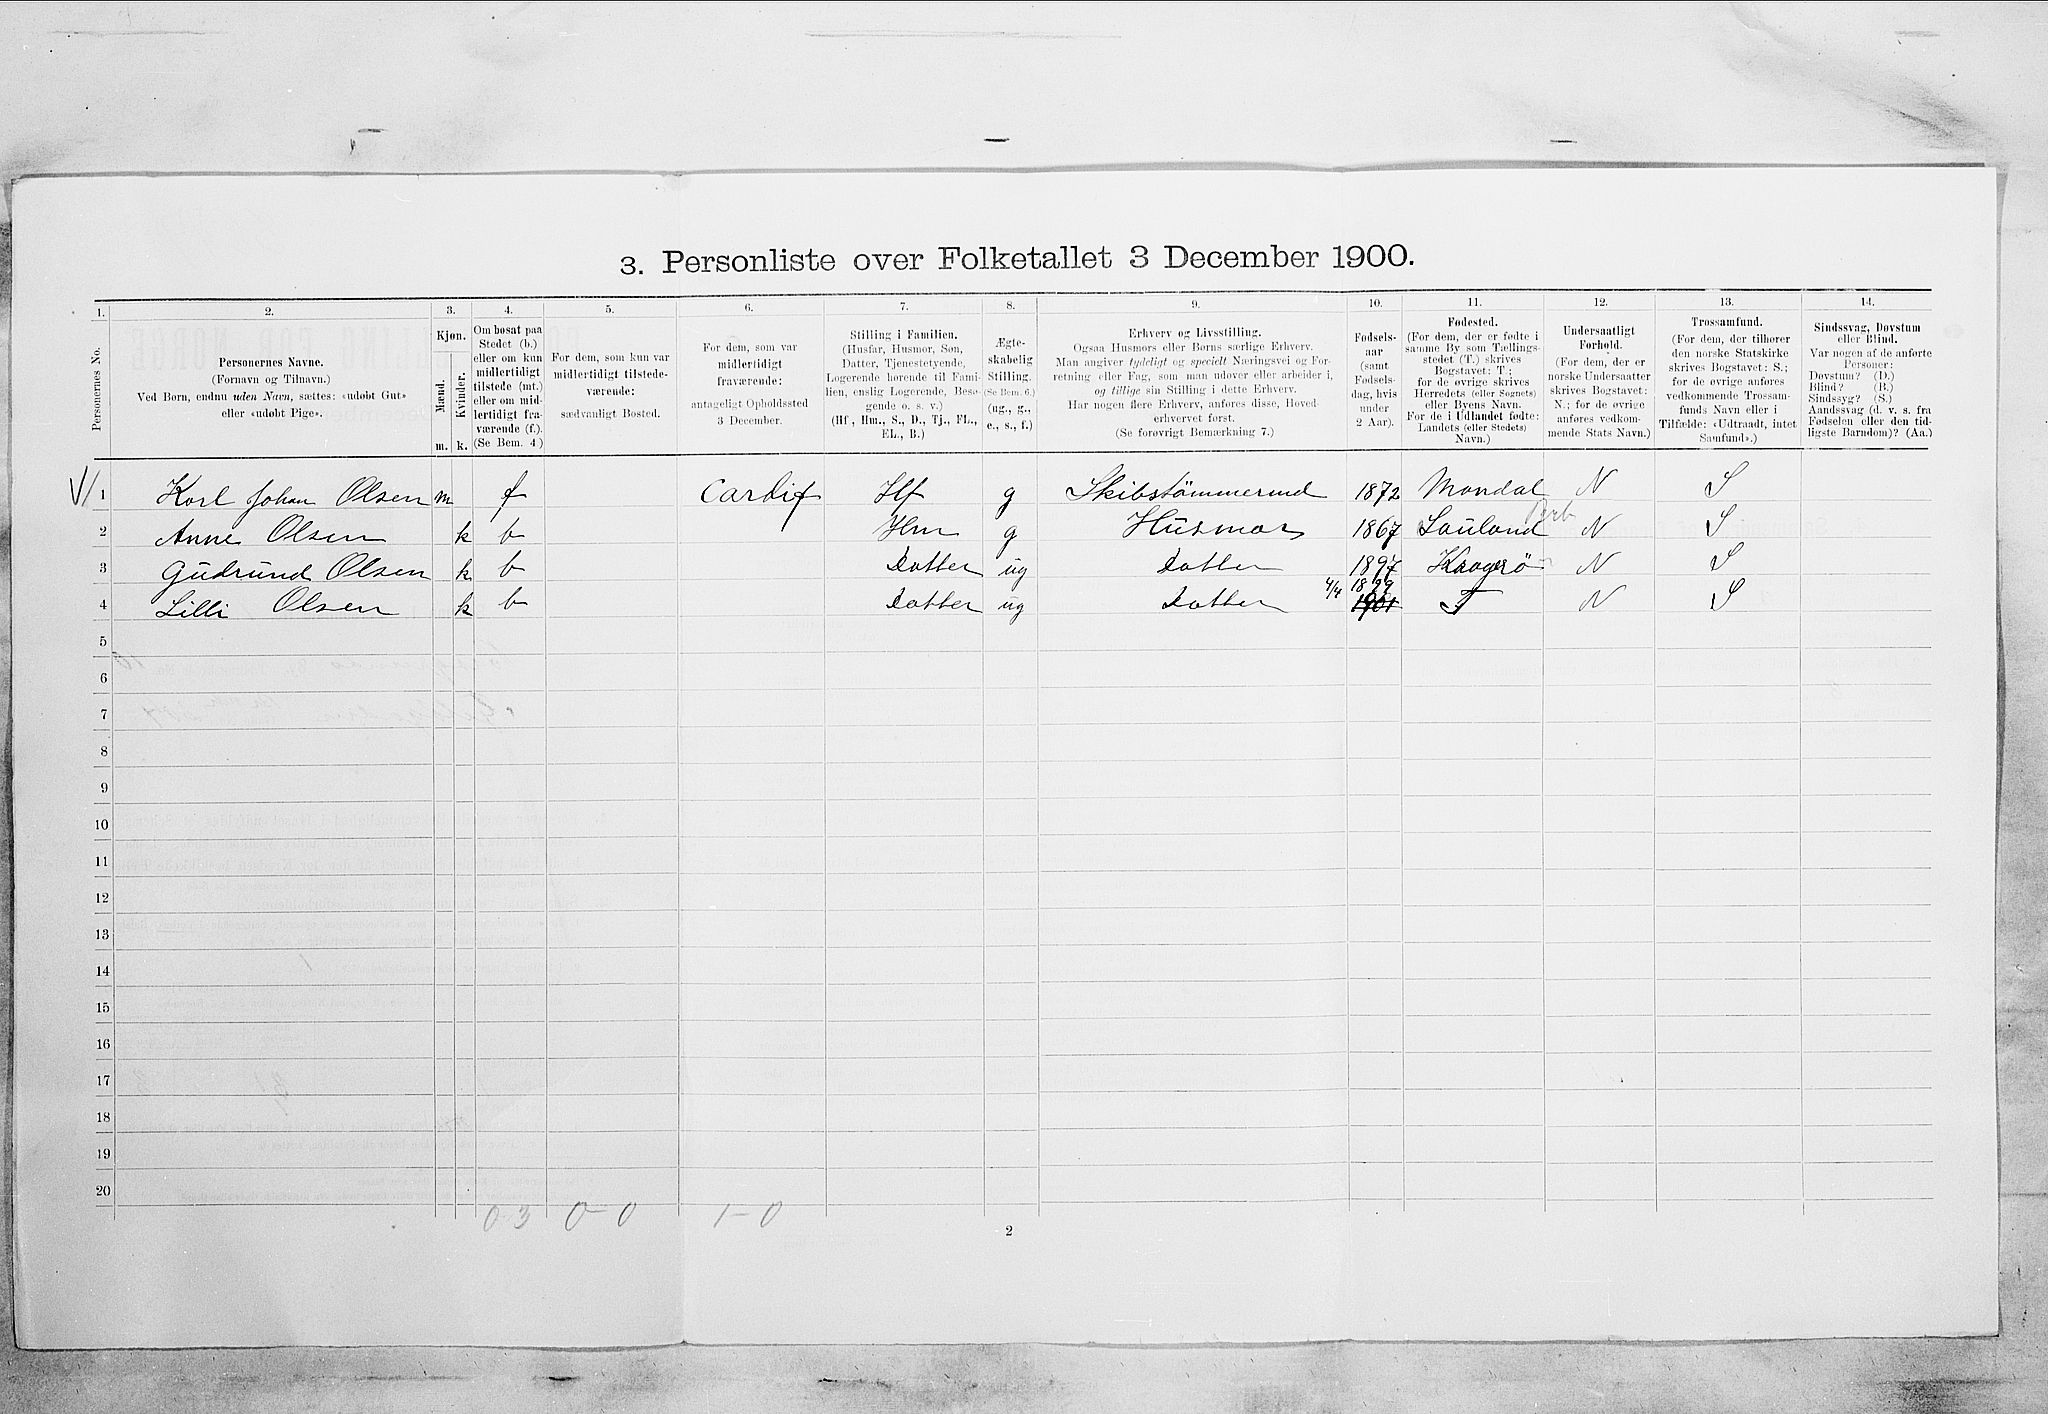 3. Personliste over Folketallet 3 December 1900.
1. 2. 3. 4. 5. 6. 7. 8. 9. 10. 11. 12. 13. 14.
Personernes No.
Personernes Navne.
(Fornavn og Tilnavn.)
Ved Børn, endnu uden Navn, sættes: «udøbt Gut»
eller «udøbt Pige».
Kjøn.
Mænd.
Kvinder.
m. k.
Om bosat paa
Stedet (b.)
eller om kun
midlertidigt
tilstede (mt.)
eller om mid-
lertidigt fra-
værende (f.).
(Se Bem. 4.)
For dem, som kun var
midlertidigt tilstede-
værende:
sædvanligt Bosted.
For dem, som var
midlertidigt
fraværende:
antageligt Opholdssted
3 December.
Stilling i Familien.
(Husfar, Husmor, Søn,
Datter, Tjenestetyende,
Logerende hørende til Fami-
lien, enslig Logerende, Besø-
gende o. s. v.)
(Hf., Hm., S., D., Tj., FL.,
EL., B.)
Ægte-
skabelig
Stilling.
(Se Bem. 6.)
(ug., g.,
e., s., f.)
Erhverv og Livsstilling.
Ogsaa Husmors eller Børns særlige Erhverv.
Man angiver tydeligt og specielt Næringsvei og For-
retning eller Fag, som man udøver eller arbeider i,
og tillige sin Stilling i dette Erhverv.
Har nogen flere Erhverv, anføres disse, Hoved-
erhvervet først.
(Se forøvrigt Bemærkning 7.)
Fødsels-
aar
(samt
Fødsels-
dag, hvis
under
2 Aar).
Fødested.
(For dem, der er fødte i
samme By som Tællings-
stedet (T.) skrives
Bogstavet: T;
for de øvrige skrives
Herredets (eller Sognets)
eller Byens Navn.
For de i Udlandet fødte:
Landets (eller Stedets)
Navn.)
Undersaatligt
Forhold.
(For dem, der er
norske Undersaatter
skrives Bogstavet:
N.; for de øvrige
anføres vedkom-
mende Stats Navn.)
Trossamfund.
(For dem, der tilhører
den norske Statskirke
skrives Bogstavet: S.;
for de øvrige anføres
vedkommende Trossam-
funds Navn eller i
Tilfælde: «Udtraadt, intet
Samfund».)
Sindssvag, Døvstum
eller Blind.
Var nogen af de anførte
Personer:
Døvstum? (D.)
Blind? (B.)
Sindssyg? (S.)
Aandssvag (d. v. s. fra
Fødselen eller den tid-
ligste Barndom)? (Aa.)
1 Karl Johan Olsen m f Cardif Hf g Skibstømmermd 1872 Mandal N S
2 Anne Olsen k b Hm g Husmor 1867 Sauland N S
3 Gudrund Olsen k b Datter ug Datter 1897 Kragerø N S
4 Lilli Olsen k b Datter ug Datter 4/4 1899 1901 T N S
5
6
7
8
9
10
11
12
13
14
15
16
17
18
19
20
0 3 0-0 1-0
2